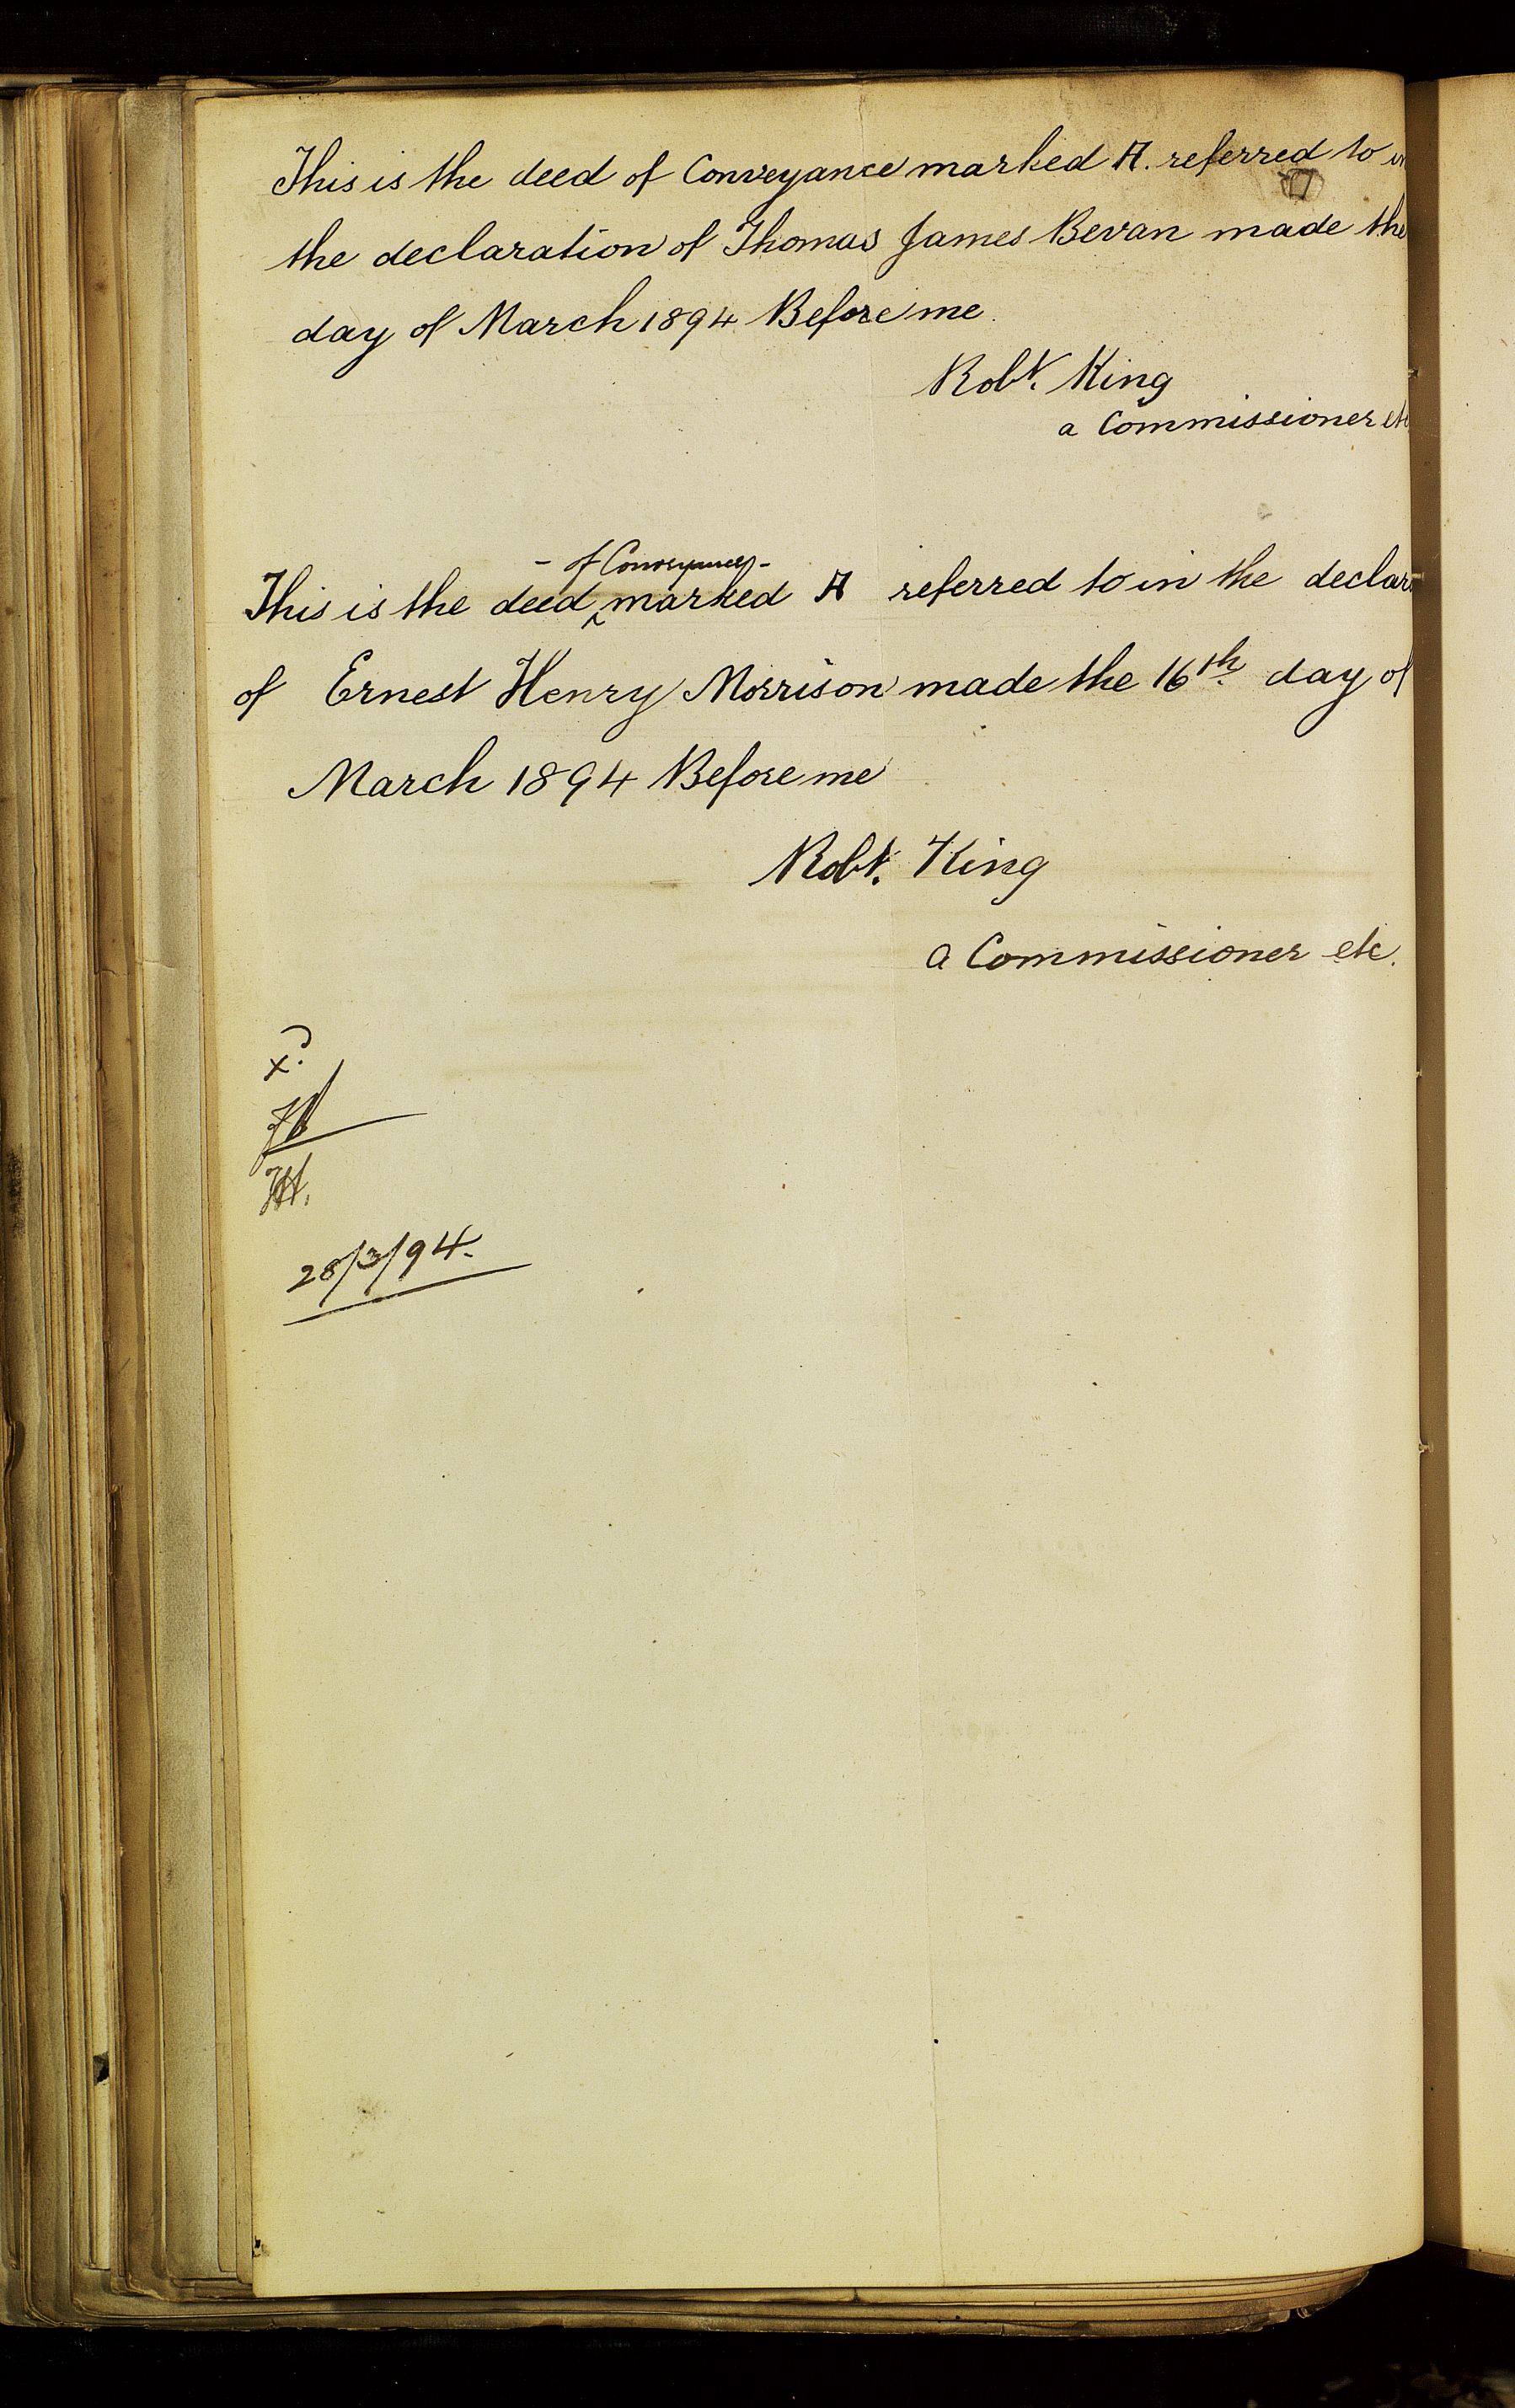 This is the deed of Conveyance marked A. referred to in
the declaration of Thomas James Bevan made the
day of March 1894 Before me
Robt. King
a Commissioner etc
- of Conveyance -
This is the deed ^ marked A referred to in the declar
of Ernest Henry Morrison made the 16th. day of
March 1894 Before me
Robt. King
a Commissioner etc.
28/3/94.